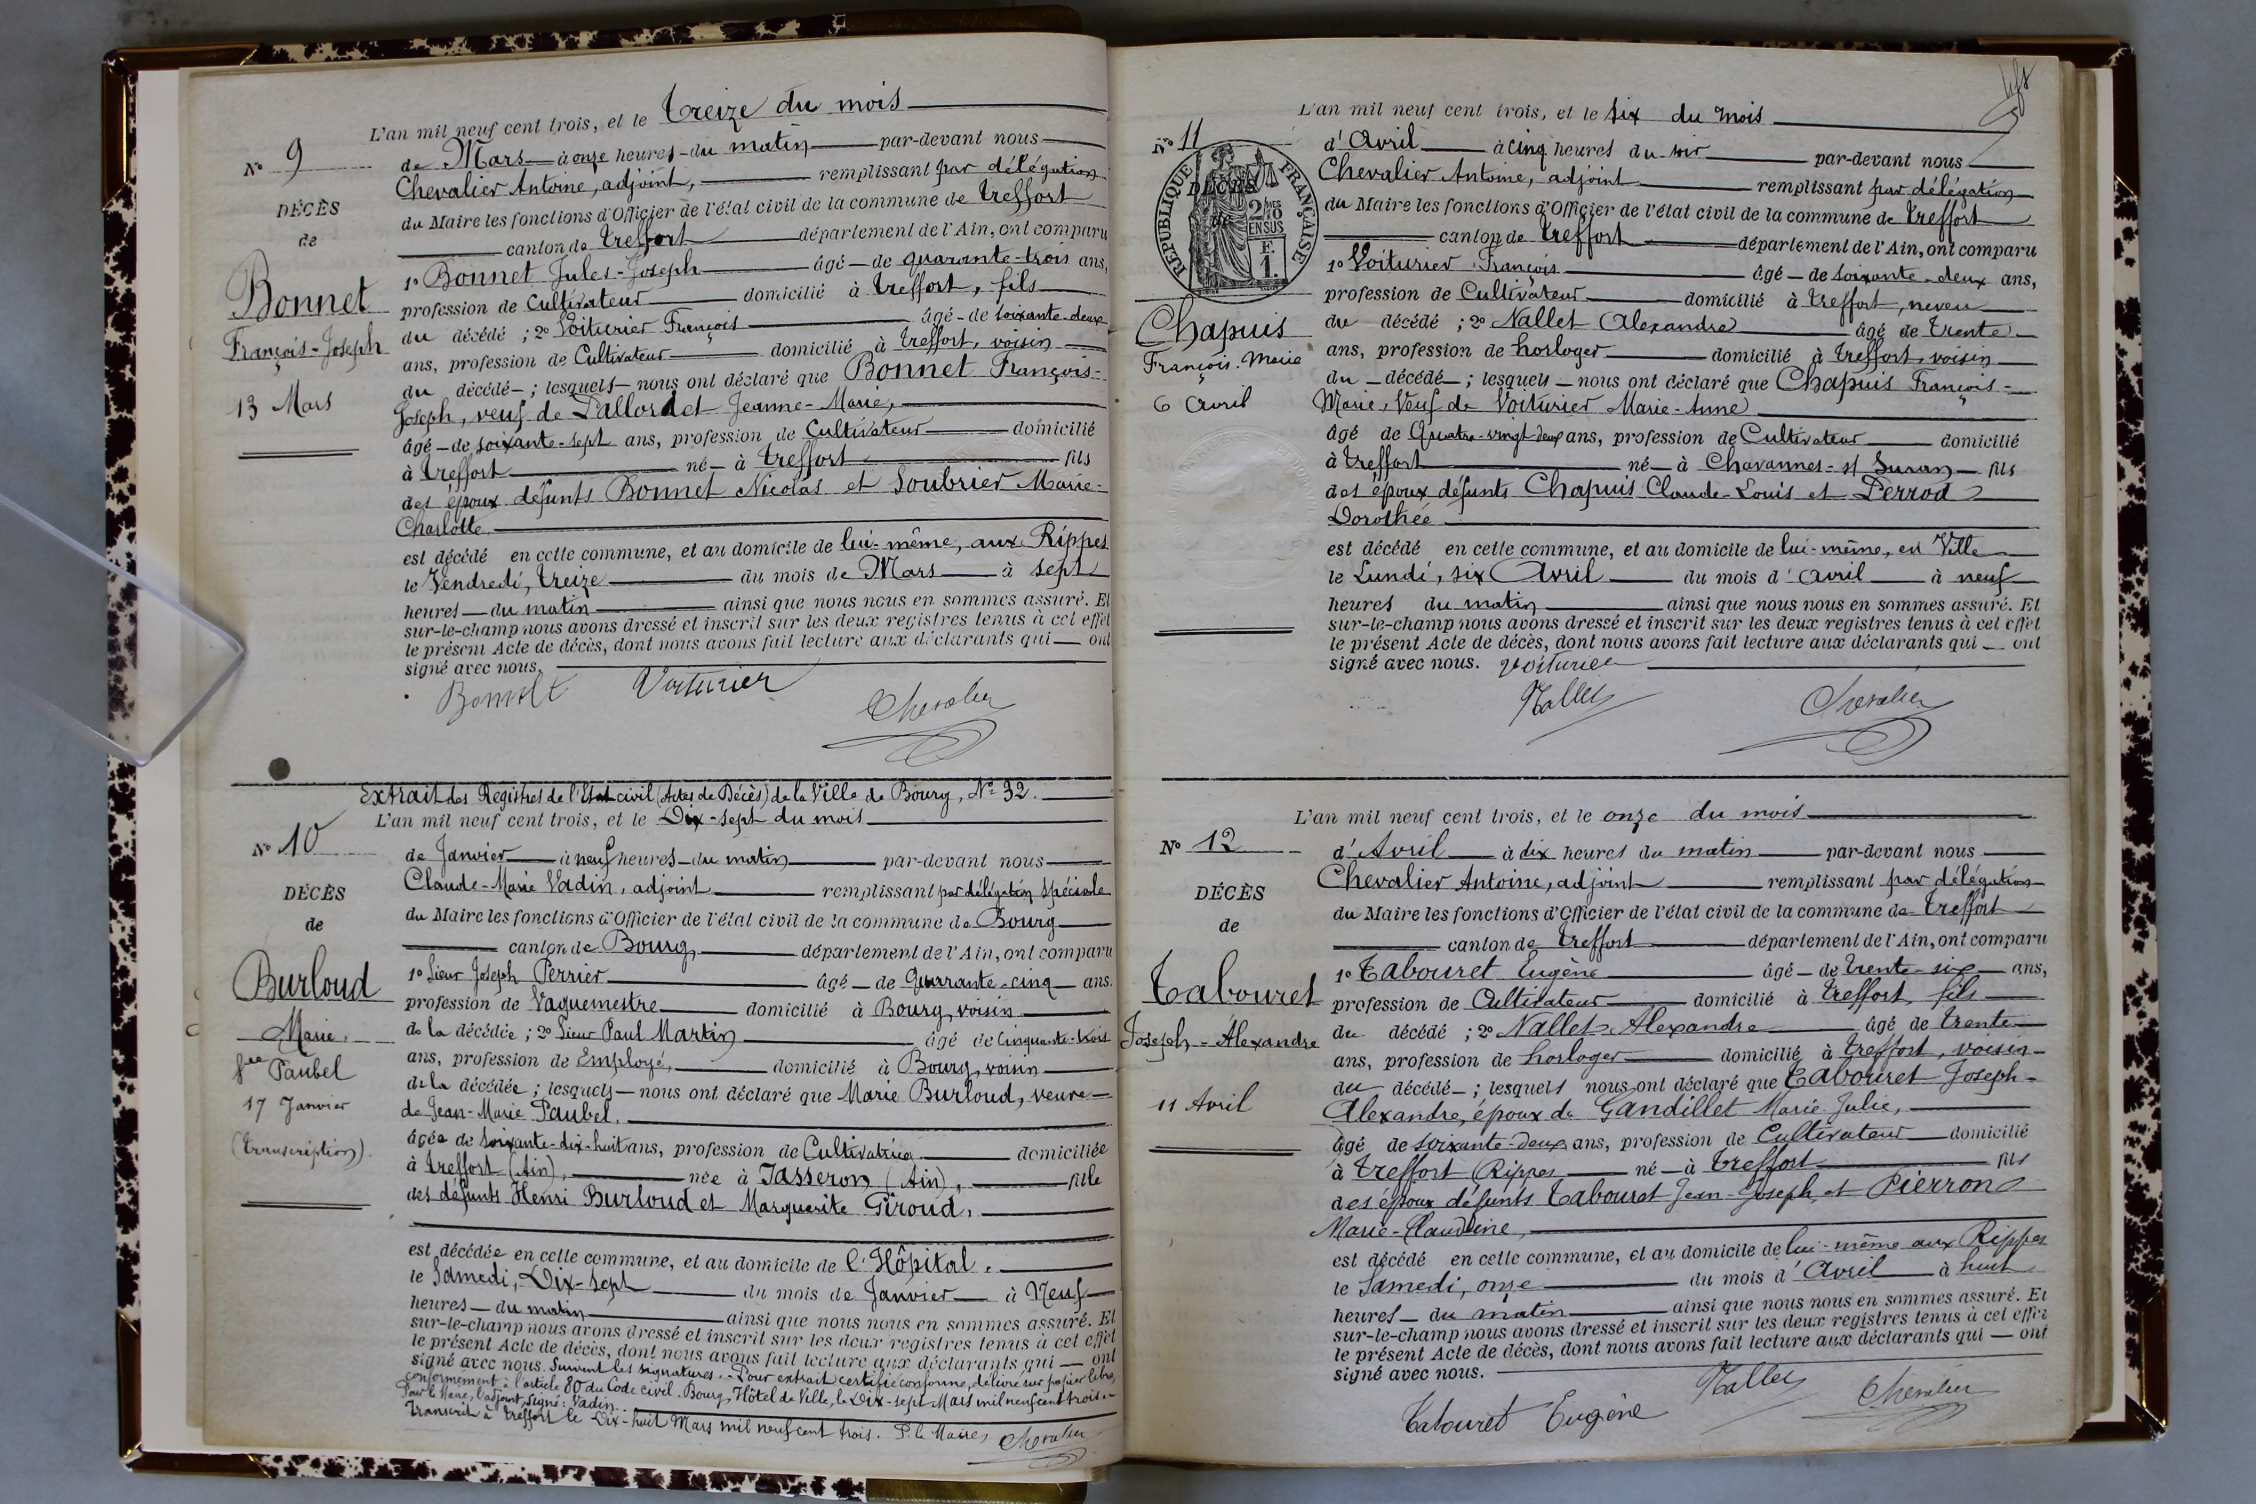 L'an mil neuf cent trois, et le treize du mois
No 9
de Mars à onze heures du matin par-devant nous
Chevalier Antoine, adjoint, remplissant par délégation
DÉCÈS
du Maire les fonctions d'Officier de l'état civil de la commune de Treffort
de
canton de Treffort département de l'Ain, ont comparu
Bonnet
1o Bonnet Jules-Joseph âgé de quarante-trois ans,
profession de Cultivateur domicilié à Treffort, fils
François-Joseph
du décédé ; 2o Voiturier François âgé de soixante-deux
ans, profession de Cultivateur domicilié à Treffort, voisin
13 Mars
du décédé ; lesquels nous ont déclaré que Bonnet François-
Joseph, veuf de Pallordet Jeanne-Marie,
âgé de soixante-sept ans, profession de Cultivateur domicilié
à Treffort né à Treffort fils
des époux défunts Bonnet Nicolas et Soubrier Marie-
Charlotte
est décédé en cette commune, et au domicile de lui-même, aux Rippes
le Vendredi, treize du mois de Mars à sept
heures du matin ainsi que nous nous en sommes assuré. Et
sur-le-champ nous avons dressé et inscrit sur les deux registres tenus à cet effet
le présent Acte de décès, dont nous avons fait lecture aux déclarants qui ont
signé avec nous.
Bonnet Voiturier Chevalier
Extrait des Registres de l'Etat civil (Actes de Décès) de la Ville de Bourg, No 32.
L'an mil neuf cent trois, et le Dix-sept du mois
No 10
de Janvier à neuf heures du matin par-devant nous
Claude-Marie Vadin, adjoint remplissant par délégation spéciale
DÉCÈS
du Maire les fonctions d'Officier de l'état civil de la commune de Bourg
de
canton de Bourg département de l'Ain, ont comparu
Burloud
1o Sieur Joseph Perrier âgé de Quarante-cinq ans.
profession de Vaguemestre domicilié à Bourg, voisin
Marie,
de la décédée ; 2o Sieur Paul Martin âgé de Cinquante-trois
fee Paubel
ans, profession de Employé, domicilié à Bourg, voisin
de la décédée ; lesquels nous ont déclaré que Marie Burloud, veuve
17 Janvier
de Jean-Marie Paubel.
(transcription).
âgée de soixante-dix-huit ans, profession de Cultivatrice domiciliée
à Treffort (Ain), née à Jasseron (Ain), fille
des défunts Henri Burloud et Marguerite Giroud,
est décédée en cette commune, et au domicile de l'Hôpital.
le Samedi, Dix-sept du mois de Janvier à Neuf
heures du matin ainsi que nous nous en sommes assuré. Et
sur-le-champ nous avons dressé et inscrit sur les deux registres tenus à cet effet
le présent Acte de décès, dont nous avons fait lecture aux déclarants qui ont
signé avec nous. Suivent les signatures. Pour extrait certifié conforme, délivré sur papier libre,
conformément à l'article 80 du Code civil. Bourg, Hôtel de Ville, le Dix-sept Mars mil neuf cent trois.
Pour le Maire, l'adjoint, signé: Vadin.
Transcrit à Treffort le Dix-huit Mars mil neuf cent trois. P. le Maire, Chevalier
L'an mil neuf cent trois, et le six du mois
No 11
d'Avril à cinq heures du soir par-devant nous
Chevalier Antoine, adjoint remplissant par délégation
RÉPUBLIQUE FRANÇAISE
DÉCÈS
de
2/10mes
EN SUS
F.
1.
du Maire les fonctions d'Officier de l'état civil de la commune de Treffort
canton de Treffort département de l'Ain, ont comparu
1o Voiturier François âgé de soixante-deux ans,
profession de Cultivateur domicilié à Treffort, neveu
Chapuis
du décédé ; 2o Nallet Alexandre âgé de trente
François-Marie
ans, profession de horloger domicilié à Treffort, voisin
du décédé ; lesquels nous ont déclaré que Chapuis François-
6 Avril
Marie, Veuf de Voiturier Marie-Anne
âgé de Quatre-vingt-deux ans, profession de Cultivateur domicilié
à Treffort né à Chavannes-s/ Suran fils
des époux défunts Chapuis Claude-Louis et Perrod
Dorothée
est décédé en cette commune, et au domicile de lui-même, en Ville
le Lundi, six Avril du mois d'Avril à neuf
heures du matin ainsi que nous nous en sommes assuré. Et
sur-le-champ nous avons dressé et inscrit sur les deux registres tenus à cet effet
le présent Acte de décès, dont nous avons fait lecture aux déclarants qui ont
signé avec nous. Voiturier
Nallet Chevalier
L'an mil neuf cent trois, et le onze du mois
No 12
d'Avril à dix heures du matin par-devant nous
Chevalier Antoine, adjoint remplissant par délégation
DÉCÈS
du Maire les fonctions d'Officier de l'état civil de la commune de Treffort
de
canton de Treffort département de l'Ain, ont comparu
Tabouret
1o Tabouret Eugène âgé de trente-six ans,
profession de Cultivateur domicilié à Treffort, fils
Joseph-Alexandre
du décédé ; 2o Nallet Alexandre âgé de trente
ans, profession de horloger domicilié à Treffort, voisin
11 Avril
du décédé ; lesquels nous ont déclaré que Tabouret Joseph-
Alexandre, époux de Gandillet Marie-Julie,
âgé de soixante-deux ans, profession de Cultivateur domicilié
à Treffort Rippes né à Treffort fils
des époux défunts Tabouret Jean-Joseph et Pierron
Marie-Claudine,
est décédé en cette commune, et au domicile de lui-même aux Rippes
le Samedi, onze du mois d'Avril à huit
heures du matin ainsi que nous nous en sommes assuré. Et
sur-le-champ nous avons dressé et inscrit sur les deux registres tenus à cet effet
le présent Acte de décès, dont nous avons fait lecture aux déclarants qui ont
signé avec nous.
Tabouret Eugène Nallet Chevalier